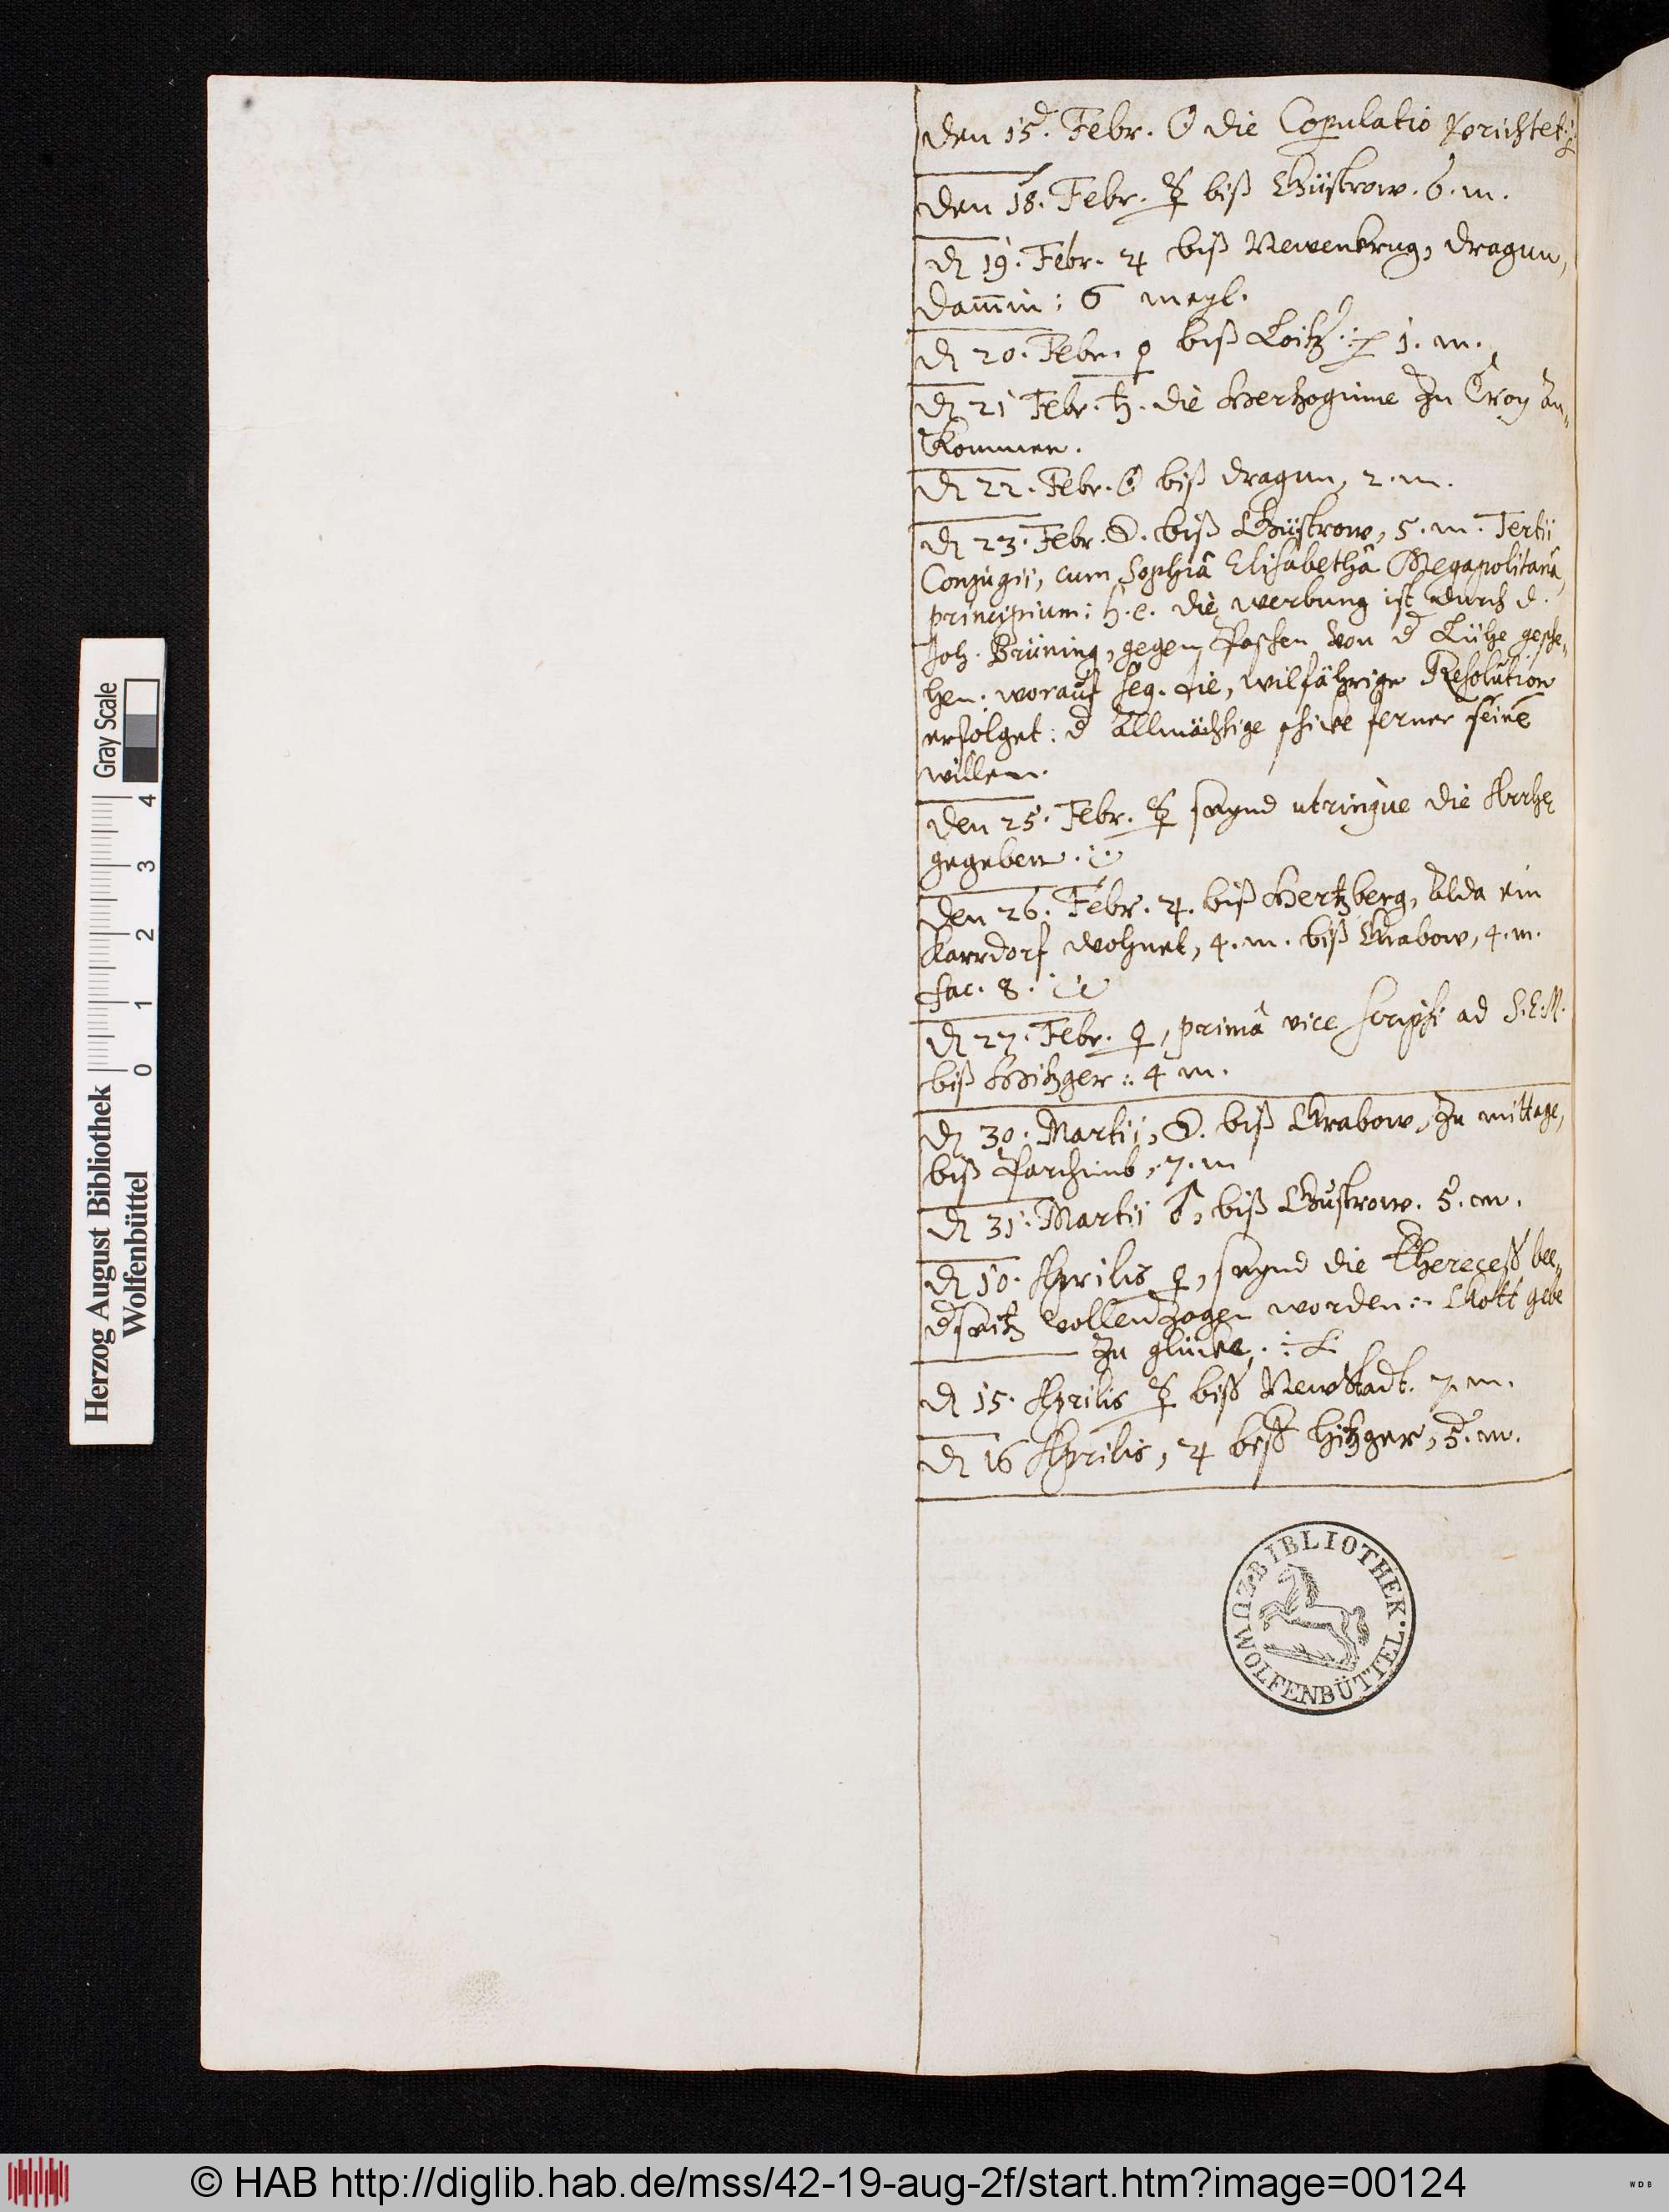 den 15. Febr. ☉ die Copulatio verichtet:
den 18. Febr. ☿ biß Güstrow. 6. m.
d 19. Febr. ♃ biß Newenkrug, dragun,
dam̄in: 6 meyl.
d 20. Febr. ♀ biß Loitz: 1. m.
d 21 Febr. ♄. die Hertzoginne zu Croy an„
kommen.
d 22. Febr. ☉ biß dragun, 2. m.
d 23. Febr. ☽. biß Güstrow, 5. m. Tertii
Conjugii, cum Sophiâ Elisabethâ Megapolitanâ,
principium: h. e. die werbung ist durch d.
Joh. Brüning, gegen Paschen von d Lühe gesche„
hen: worauf seq. die, wilfährige Resolution
erfolget: d Allmächtige schicke ferner seinē
willen.
den 25. Febr. ☿ seynd utrinque die Arrhę
gegeben.
den 26. Febr. ♃. biß Hertzberg, alda ein
Barrdorf wohnet, 4. m. biß Grabow, 4. m.
fac. 8.
d 27. Febr. ♀, primâ vice scripsi ad S. E. M.
biß Hitzger: 4 m.
d 30. Martii, ☽. biß Grabow, zu mittage,
biß Parchimb, 7. m
d 31. Martii ♂, biß Güstrow. 5. m.
d 10. Aprilis ♀, seynd die Eherecess bee„
dseitz vollenzogen worden: Gott gebe
zu glücke.
d 15. Aprilis ☿ biß Newstadt. 7. m.
d 16 Aprilis, ♃ biß Hitzger, 5. m.
BIBLIOTHEK · ZU · WOLFENBÜTTEL ·
Herzog August Bibliothek
Wolfenbüttel
0 1 2 3 4
Gray Scale
© HAB http://diglib.hab.de/mss/42-19-aug-2f/start.htm?image=00124
WDB